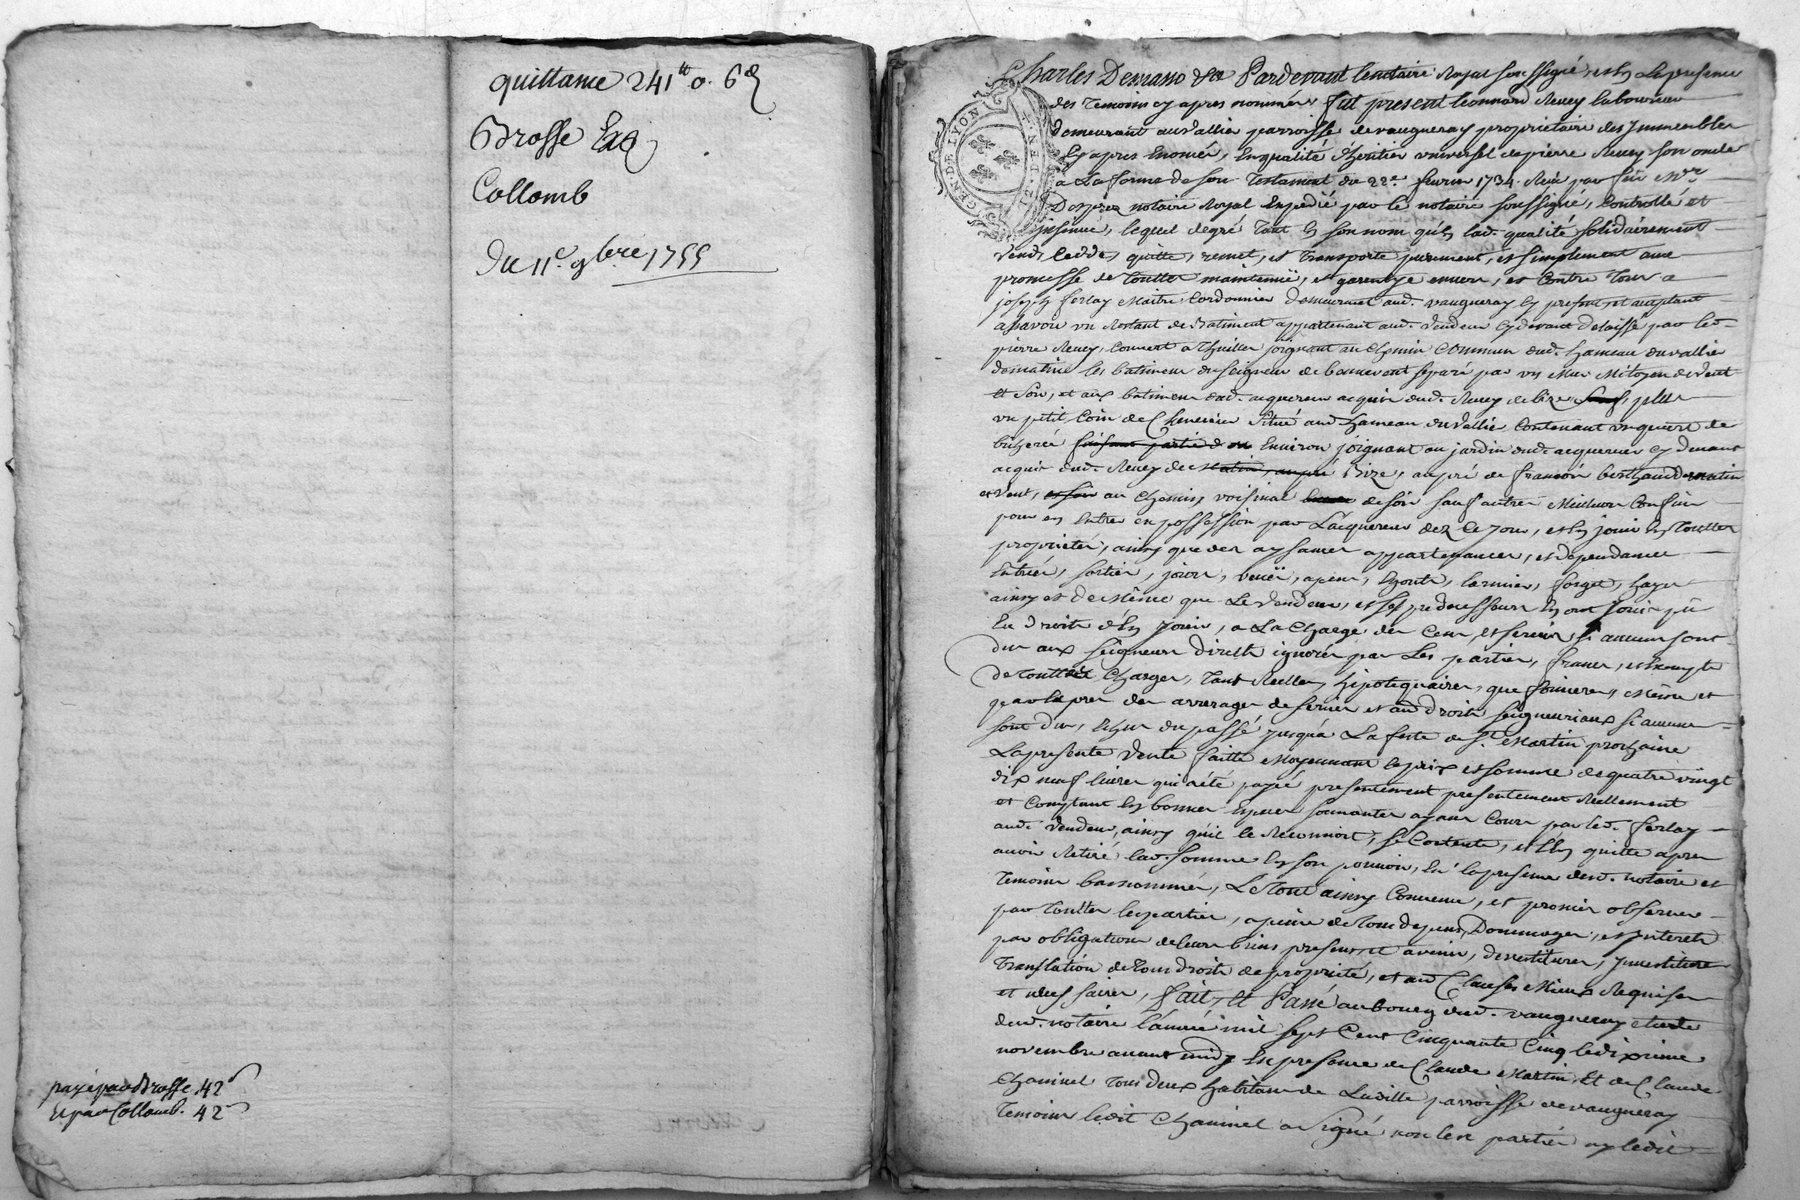 quittance 241# o. 6d
Brosse Exq
Collomb
Du 11e. 9bre. 1755
payé par Brosse. 42s
Et par Collomb. 42s
GEN. DE LYON
Pardevant le notaire Royal soussigné, et En La presence
des temoins cy apres nommés, fut present Leonnard Reney laboureur
demeurant au vallier parroisse de vaugneray proprietaire des Immeubles
Cy apres Enoncés, En qualité d'heritier universel de pierre Reney son oncle
a La forme de son testament du 22e. fevrier 1734. Reçu par feu Me.
notaire Royal Expedié par le notaire soussigné, Controllé et
insinué, lequel de gré tant En son nom qu'En lad. qualité solidairement
vend, cedde, quitte, remet, et transporte purement, et simplement avec
promesse de touttes maintenües, et garentye envers, et Contre tous a
joseph ferlay Maitre Cordonnier demeurant aud. vaugneray Cy present et acceptant
assavoir un Restant de Batiment appartenant aud. vendeur Cy devant delaissé par led.
pierre Reney, Couvert a thuilles joignant au Chemin Commun dud. hameau du vallier
de matin les batimens du seigneur de bonnevent separé par un Mur Mitoyen de vent
et soir, et aux batimens dud. acquereur acquis dud. Reney de bize, plus
un petit Coin de Chenevier situé aud. hameau du vallier Contenant un quart de
bicherée Environ joignant au jardin dud. acquereur cy devant
acquis dud. Reney de Bize, au pré de francois berthaud de matin
et vent, au Chemin voisinal de soir sauf autres Meilleurs Confins
pour en Entrer en possession par L'acquereur dez Ce jour, et En jouir En touttes
proprietés, ainsy que des aysances appartenances, et dependances
Entrées, sorties, jours, veües, larmiers, forget,
ainsy et de Même que Le vendeur, et ses predecesseurs En ont joui pü
Eu droit d'En jouir, a La Charge des Cens, et servis si aucuns sont
dus aux seigneurs directs ignorés par Les parties, francs, et Exempts
de touttes Charges, tant Reelles, hipotequaires, que foncieres, Même et
par Exprez des arrerages de servis et aud. droits seigneuriaux si aucuns
sont dus, Echus du passé jusqu'a La feste de St. Martin prochaine
La presente vente faitte Moyennant le prix et somme de quatre vingt
dix neuf livres qui a été payé presentement presentement Reellement
et Comptant En bonnes Especes sonnantes ayant Cours par led. ferlay
aud. vendeur, ainsy qu'il le Reconnoit, se Contente, et L'En quitte apres
avoir Retiré lad. somme En son pouvoir, En la presence dud. notaire et
temoins bas nommés, Le tout ainsy Convenu, et promis observer
par touttes les parties, a peine de tous depens, Dommages, et Interets
par obligation de leurs biens presens, et avenir, devestitures, Investitures
translation de tous droits de proprieté, et aux Clauses Mieux Requises
et necessaires, fait, et Passé au bourg dud. vaugneray etude
dud. notaire L'année mil sept Cent Cinquante Cinq le dixieme
novembre avant midy En presence de Claude Martin, Et de Claude
Chaninel tous deux habitans de La ville parroisse de vaugneray
temoins ledit Chaninel a signé non les parties ny ledit